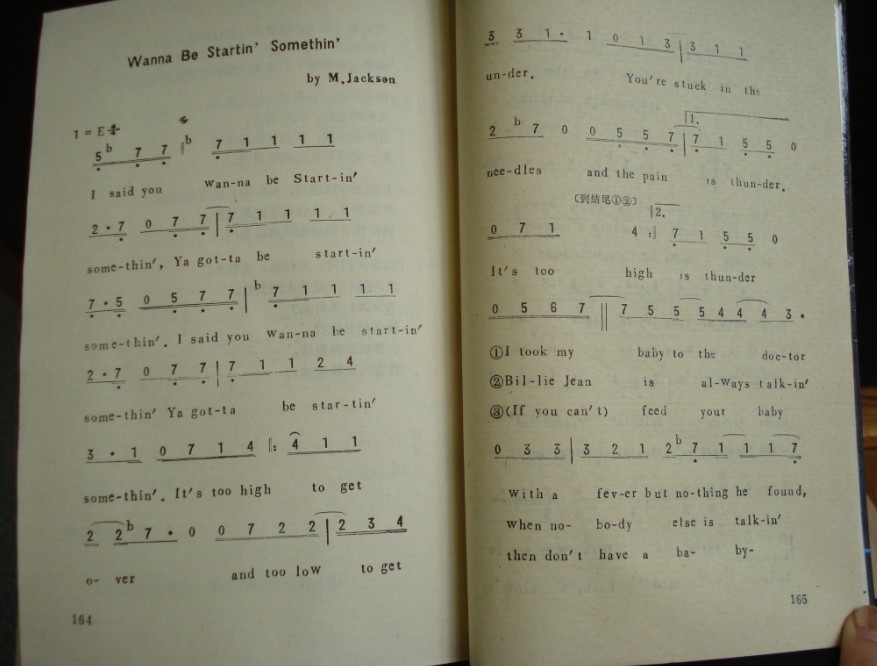 Wanna Be Startin' Somethin'
by M.Jackson
1=E 4/4
5 b7 7 | b7 1 1 1 1
I said you Wan-na be Start-in'
2·7 0 7 7 | 7 1 1 1 1
some-thin', Ya got-ta be start-in'
7·5 0 5 7 7 | b7 1 1 1 1
some-thin'. I said you Wan-na be start-in'
2·7 0 7 7 | 7 1 1 2 4
some-thin' Ya got-ta be star-tin'
3·1 0 7 1 4 ‖: 4 1 1
some-thin'. It's too high to get
2 2 b7· 0 0 7 2 2 | 2 3 4
o- ver and too loW to get
164
3 3 1· 1 0 1 3 | 3 1 1
un-der. You're stuck in the
2 b7 0 0 5 5 7 | 1. 7 1 5 5 0
nee-dles and the pain is thun-der.
(到结尾①②)
0 7 1 4 :‖ 2. 7 1 5 5 0
It's too high is thun-der
0 5 6 7 ‖ 7 5 5 5 4 4 4 3·
①I took my baby to the doc-tor
②Bil-lie Jean is al-Ways talk-in'
③(If you can't) feed your baby
0 3 3 | 3 2 1 2 b7 1 1 1 7
With a fev-er but no-thing he found,
When no- bo-dy else is talk-in'
then don't have a ba- by-
165